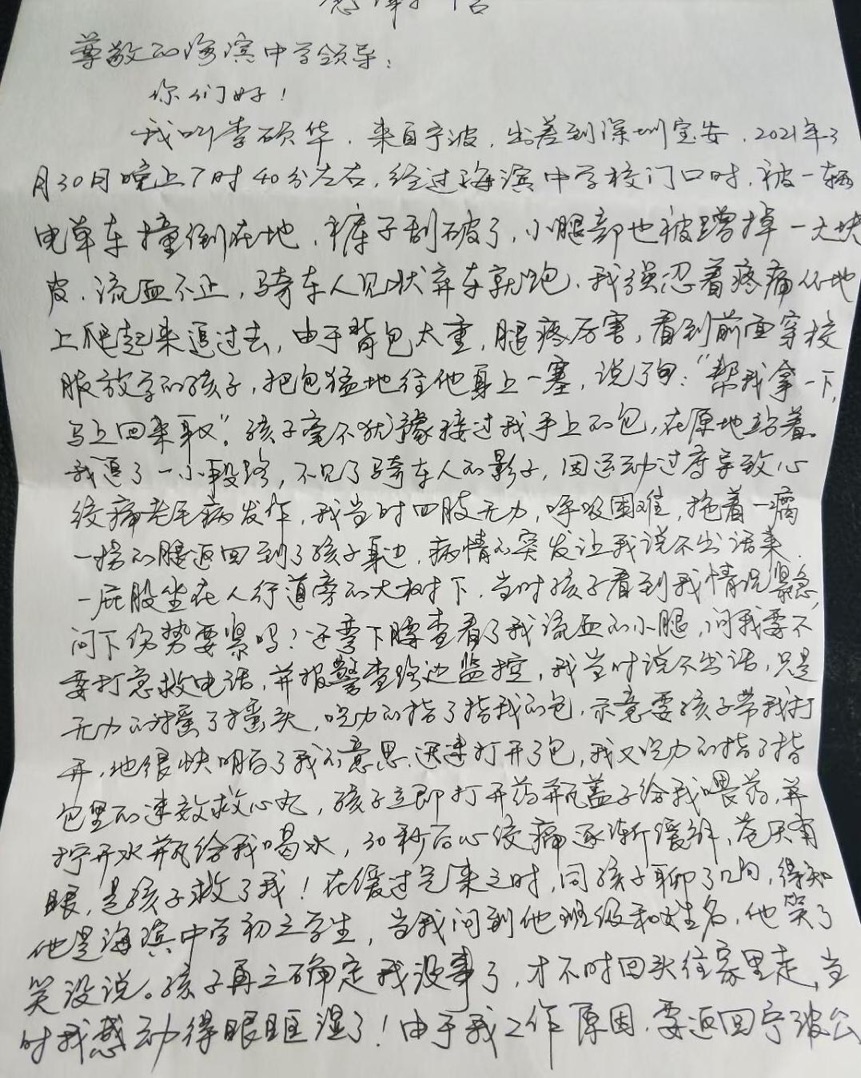 感谢信
尊敬的海滨中学领导：
你们好！
我叫李硕华，来自宁波，出差到深圳宝安，2021年3
月30日晚上7时40分左右，经过海滨中学校门口时，被一辆
电单车撞倒在地，裤子刮破了，小腿部也被蹭掉一大块
皮，流血不止，骑车人见状弃车就跑，我强忍着疼痛从地
上爬起来追过去，由于背包太重，腿疼厉害，看到前面穿校
服放学的孩子，把包猛地往他身上一塞，说了句："帮我拿一下，
马上回来取"。孩子毫不犹豫接过我手上的包，在原地站着。
我追了一小段路，不见了骑车人的影子，因运动过度导致心
绞痛老毛病发作，我当时四肢无力，呼吸困难，拖着一瘸
一拐的腿返回到了孩子身边，病情的突发让我说不出话来，
一屁股坐在人行道旁的大树下，当时孩子看到我情况紧急，
问下伤势要紧吗？还弯下腰查看了我流血的小腿，问我要不
要打急救电话，并报警查路边监控，我当时说不出话，只是
无力的摇了摇头，吃力的指了指我的包，示意要孩子帮我打
开，他很快明白了我的意思，迅速打开了包，我又吃力的指了指
包里的速效救心丸，孩子立即打开药瓶盖子给我喂药，并
拧开水瓶给我喝水，30秒后心绞痛逐渐缓解，苍天有
眼，是孩子救了我！在缓过气来之时，同孩子聊了几句，得知
他是海滨中学初三学生，当我问到他班级和姓名，他笑了
笑没说。孩子再三确定我没事了，才不时回头往家里走，当
时我感动得眼眶湿了！由于我工作原因，要返回宁波公